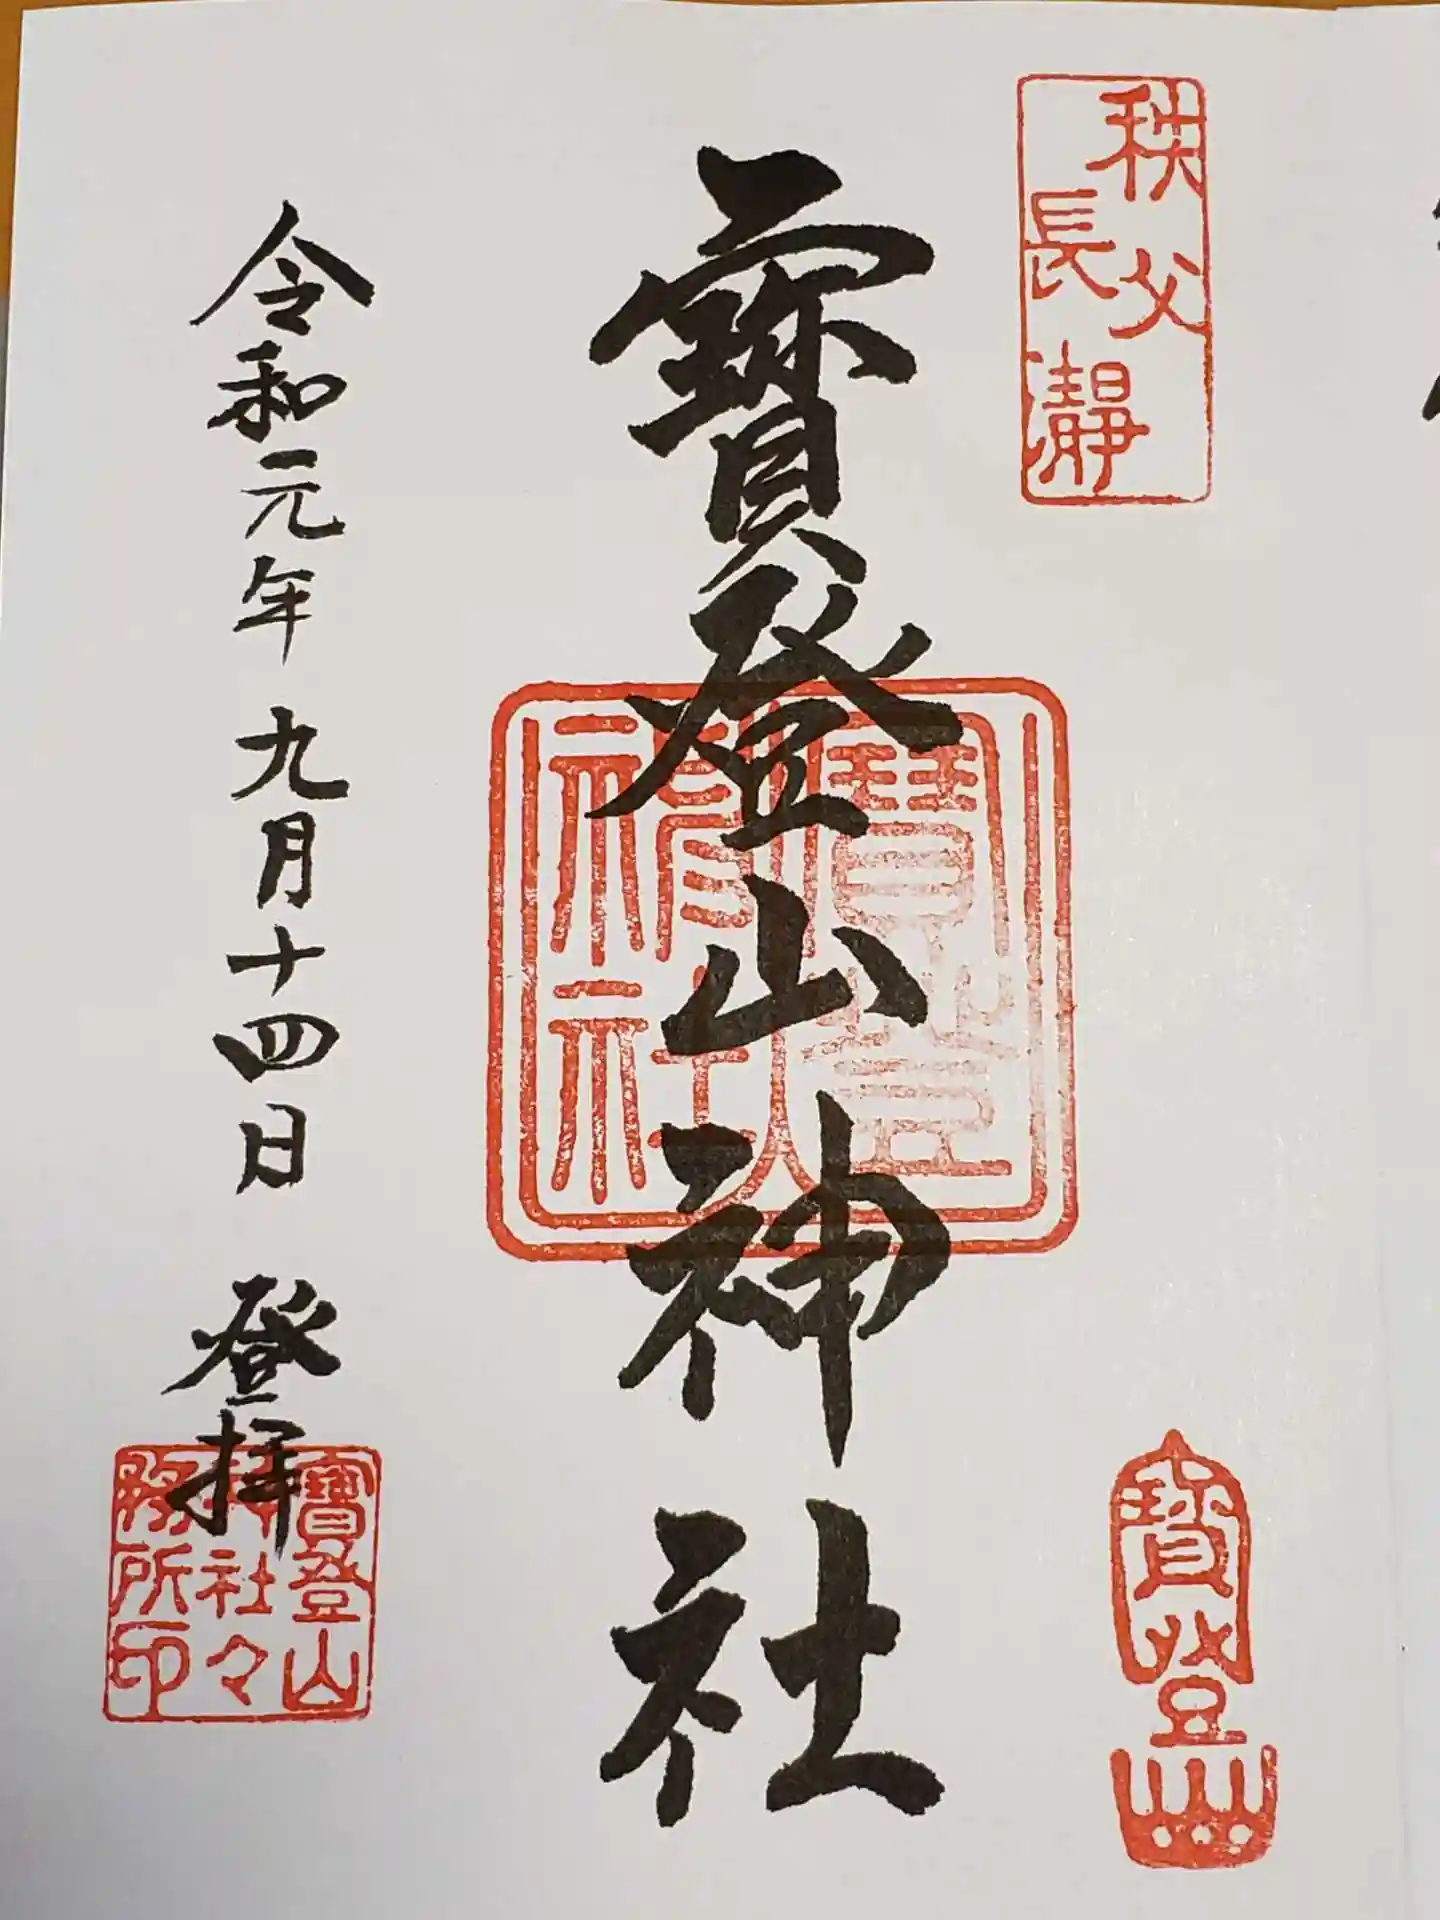 秩父
長瀞
寳登山
寳登山神社
寳登神社
令和元年九月十四日 登拝
寳登山
神社々
務所印